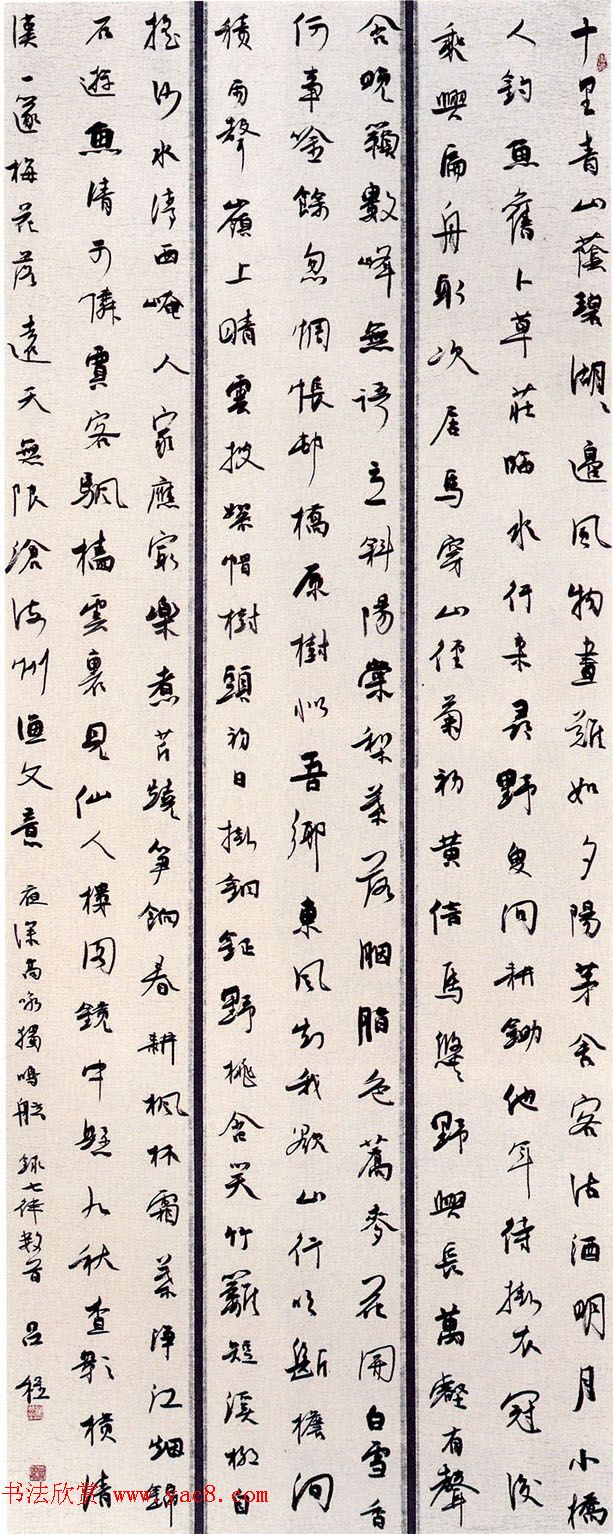 十里青山蔭碧湖湖邊風物畫難如夕陽茅舍客沽酒明月小橋
人釣魚舊卜草莊臨水竹来尋野叟問耕鋤他年待掛衣冠後
乘興扁舟取次居馬穿山徑菊初黃信馬悠悠野興長萬壑有聲
含晚籟數峰無語立斜陽棠梨葉落胭脂色蕎麥花開白雪香
何事吟餘忽惆悵村橋原樹似吾鄉東風知我欲山行吹斷檐間
積雨聲嶺上晴雲披絮帽樹頭初日掛銅鉦野桃含笑竹籬短溪柳自
搖沙水清西崦人家應最樂煮芹燒筍餉春耕楓林霜葉淨江烟錦
石遊魚清可憐賈客帆檣雲裏見仙人樓閣鏡中懸九秋查影橫清
漢一篴梅花落遠天無限滄海州漁父意 夜深高詠獨鳴舷 錄七律數首 吕
书法欣赏 www.yac8.com